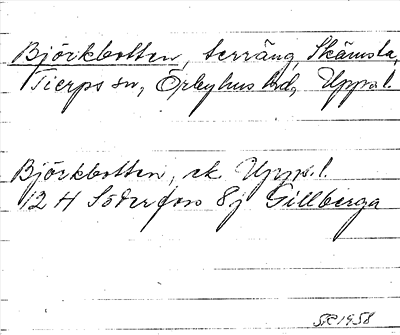 Björkbotten, terräng, Skämsta,
Tierps sn, Örbyhus hd, Upps.l.
Björkbotten, ek Upps.l.
12 H Söderfors 8j Gillberga
1958